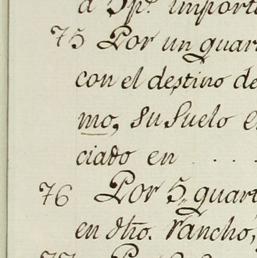 á 3 p.s import
75 Por un quar
con el destino de
mo, su Suelo e
ciado en . . . .
76 Por 5 quar
en dho. rancho,
77